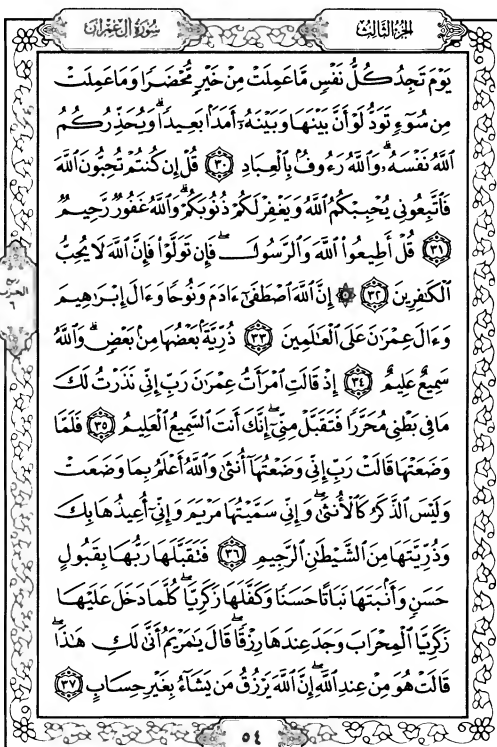 الجزء الثالث
سورة آل عمران
يَوْمَ تَجِدُ كُلُّ نَفْسٍ مَّا عَمِلَتْ مِنْ خَيْرٍ مُّحْضَرًا وَمَا عَمِلَتْ
مِن سُوٓءٍ تَوَدُّ لَوْ أَنَّ بَيْنَهَا وَبَيْنَهُۥٓ أَمَدًۢا بَعِيدًا ۗ وَيُحَذِّرُكُمُ
ٱللَّهُ نَفْسَهُۥ ۗ وَٱللَّهُ رَءُوفٌۢ بِٱلْعِبَادِ ٣٠ قُلْ إِن كُنتُمْ تُحِبُّونَ ٱللَّهَ
فَٱتَّبِعُونِى يُحْبِبْكُمُ ٱللَّهُ وَيَغْفِرْ لَكُمْ ذُنُوبَكُمْ ۗ وَٱللَّهُ غَفُورٌ رَّحِيمٌ
٣١ قُلْ أَطِيعُوا۟ ٱللَّهَ وَٱلرَّسُولَ ۖ فَإِن تَوَلَّوْا۟ فَإِنَّ ٱللَّهَ لَا يُحِبُّ
ٱلْكَٰفِرِينَ ٣٢ ۞ إِنَّ ٱللَّهَ ٱصْطَفَىٰٓ ءَادَمَ وَنُوحًا وَءَالَ إِبْرَٰهِيمَ
وَءَالَ عِمْرَٰنَ عَلَى ٱلْعَٰلَمِينَ ٣٣ ذُرِّيَّةًۢ بَعْضُهَا مِنۢ بَعْضٍ ۗ وَٱللَّهُ
سَمِيعٌ عَلِيمٌ ٣٤ إِذْ قَالَتِ ٱمْرَأَتُ عِمْرَٰنَ رَبِّ إِنِّى نَذَرْتُ لَكَ
مَا فِى بَطْنِى مُحَرَّرًا فَتَقَبَّلْ مِنِّىٓ ۖ إِنَّكَ أَنتَ ٱلسَّمِيعُ ٱلْعَلِيمُ ٣٥ فَلَمَّا
وَضَعَتْهَا قَالَتْ رَبِّ إِنِّى وَضَعْتُهَآ أُنثَىٰ وَٱللَّهُ أَعْلَمُ بِمَا وَضَعَتْ
وَلَيْسَ ٱلذَّكَرُ كَٱلْأُنثَىٰ ۖ وَإِنِّى سَمَّيْتُهَا مَرْيَمَ وَإِنِّىٓ أُعِيذُهَا بِكَ
وَذُرِّيَّتَهَا مِنَ ٱلشَّيْطَٰنِ ٱلرَّجِيمِ ٣٦ فَتَقَبَّلَهَا رَبُّهَا بِقَبُولٍ
حَسَنٍ وَأَنۢبَتَهَا نَبَاتًا حَسَنًا وَكَفَّلَهَا زَكَرِيَّا ۖ كُلَّمَا دَخَلَ عَلَيْهَا
زَكَرِيَّا ٱلْمِحْرَابَ وَجَدَ عِندَهَا رِزْقًا ۖ قَالَ يَٰمَرْيَمُ أَنَّىٰ لَكِ هَٰذَا ۖ
قَالَتْ هُوَ مِنْ عِندِ ٱللَّهِ ۖ إِنَّ ٱللَّهَ يَرْزُقُ مَن يَشَآءُ بِغَيْرِ حِسَابٍ ٣٧
٥٤